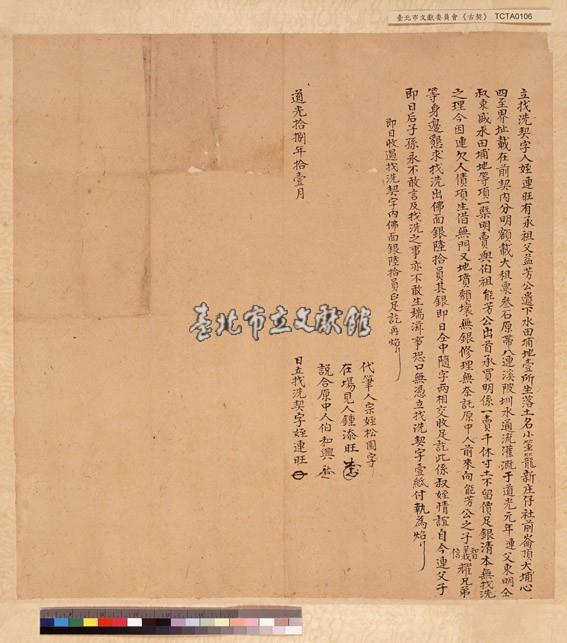 臺北市文獻委員會《古契》 TCTA0106
立找洗契字人姪連旺有承祖父益芳公遺下水田埔地壹所坐落土名小箕籠新庄仔社前崙頂大埔心
四至界址載在前契內分明額載大租粟叁石原帶八連溪陂圳水通流灌溉于道光元年連父東明仝
叔東盛水田埔地等項一槩明賣與伯祖能芳公出首承買明係一賣千休寸土不留價足銀清本無找洗
之理今因連欠人債項生借無門又地墳頹壞無銀修理無奈託原中人前來向能芳公之子智義信耀兄弟
等身邊懇求找洗出佛面銀陸拾員其銀即日仝中隨字兩相交收足訖此係叔姪情誼自今連父子
即日后子孫永不敢言及找洗之事亦不敢生端滋事恐口無憑立找洗契字壹紙付執為炤
即日收過找洗契字內佛面銀陸拾員正足訖再炤
代筆人宗姪松園字
在場見人鍾添旺
說合原中人伯和興
日立找洗契字姪連旺
道光拾捌年拾壹月
臺北市立文獻館